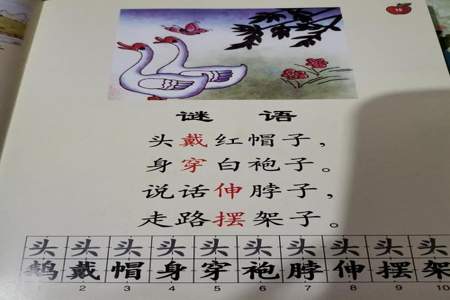 谜 语
头戴红帽子,
身穿白袍子。
说话伸脖子,
走路摆架子。
头 头 头 头 头 头 头 头 头 头
鹅 戴 帽 身 穿 袍 脖 伸 摆 架
2 3 4 5 6 7 8 9 10